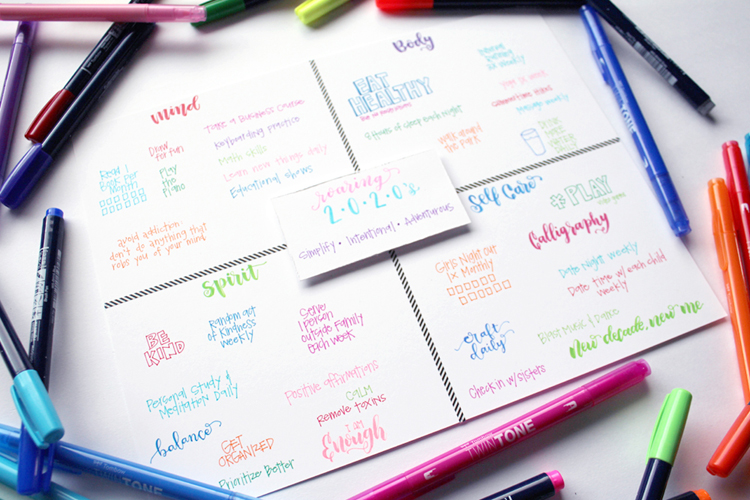 mind
Take a Business Course
Draw
for fun
Keyboarding practice
Math skills
Play
the
Piano
Read 1
Book per
Month
Learn new things daily
Educational shows
avoid addiction -
don't do anything that
robs you of your mind
Body
EAT
HEALTHY
8 hours of sleep each night
walk around
the park
Massage weekly
roaring
2.0.2.0's
Simplify • Intentional • Adventurous
Self Care
#PLAY
Calligraphy
Girls Night out
1x Monthly
Date Night weekly
Date time w/ each child
weekly
craft
daily
Blast Music / Dance
New decade, new me
Check in w/ sisters
Spirit
BE
KIND
Random act
of Kindness
weekly
Serve
1 person
outside Family
each week
Personal Study &
Meditation Daily
Positive affirmations
CALM
Remove toxins
balance
GET
ORGANIZED
Prioritize Better
I am
Enough
TWINTONE
TWINTONE